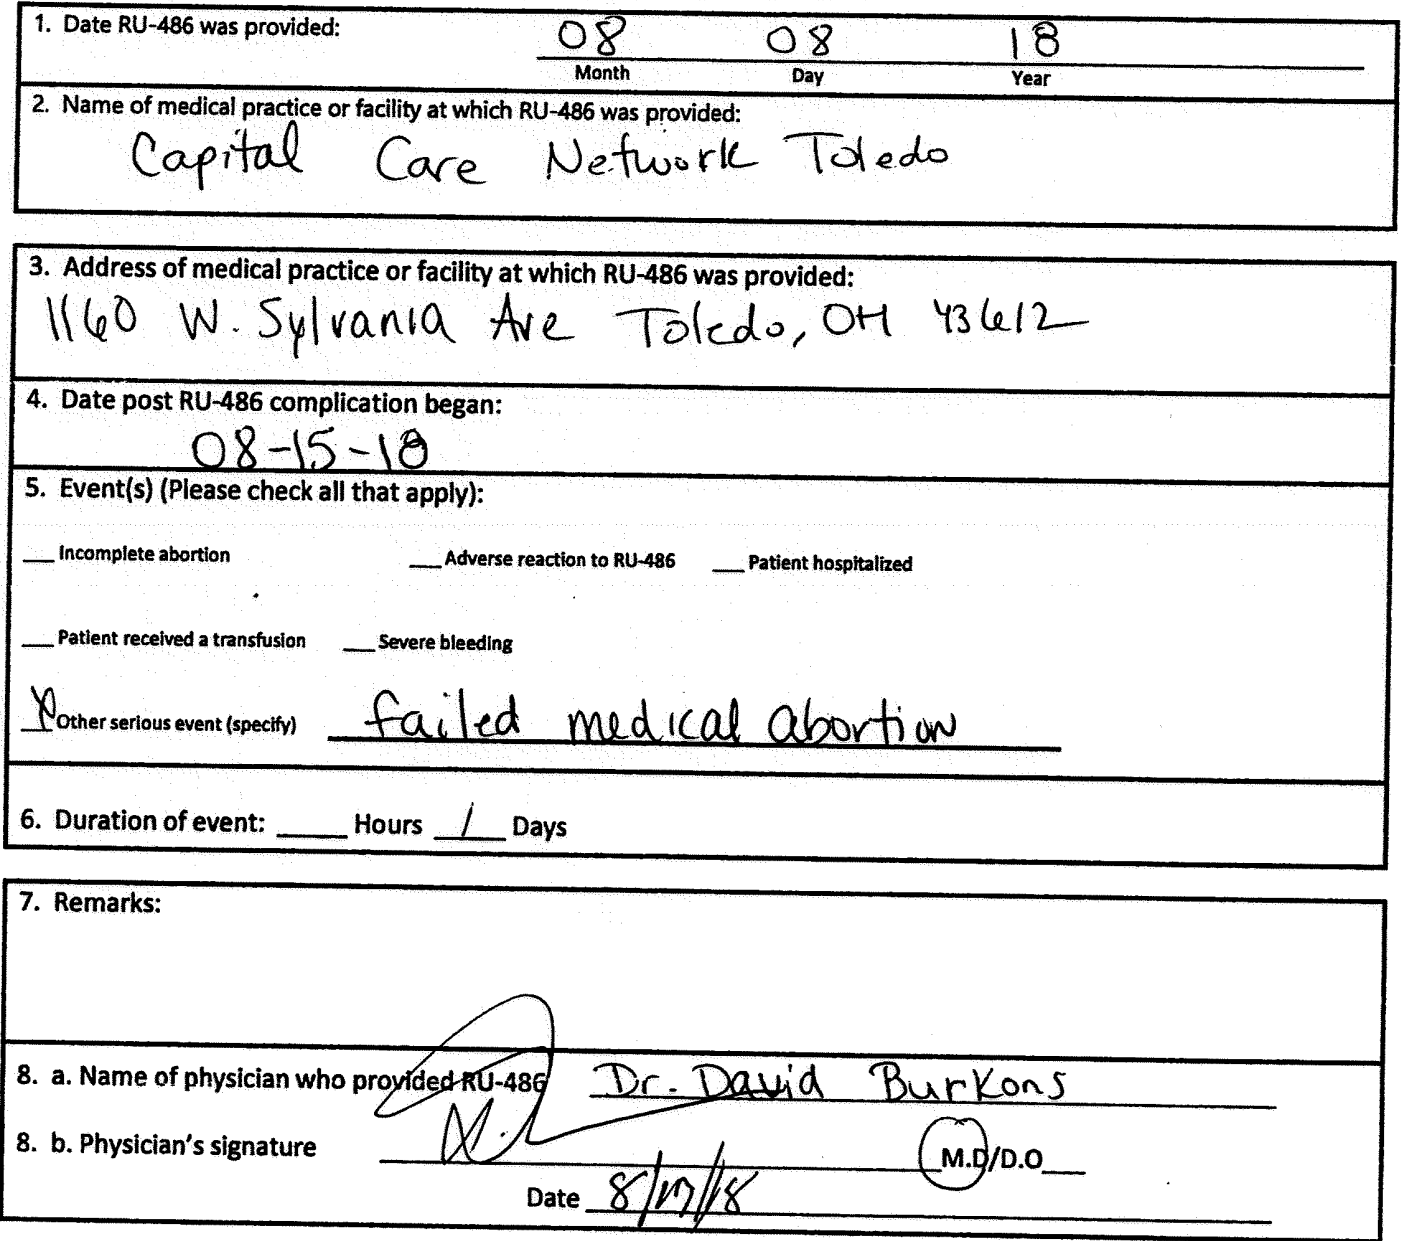 1. Date RU-486 was provided: 08 08 18
Month Day Year
2. Name of medical practice or facility at which RU-486 was provided:
Capital Care Network Toledo
3. Address of medical practice or facility at which RU-486 was provided:
1160 W. Sylvania Ave Toledo, OH 43612
4. Date post RU-486 complication began:
08-15-18
5. Event(s) (Please check all that apply):
__ Incomplete abortion __ Adverse reaction to RU-486 __ Patient hospitalized
__ Patient received a transfusion __ Severe bleeding
X Other serious event (specify) failed medical abortion
6. Duration of event: ____ Hours 1 Days
7. Remarks:
8. a. Name of physician who provided RU-486 Dr. David Burkons
8. b. Physician's signature M.D/D.O__
Date 8/17/18